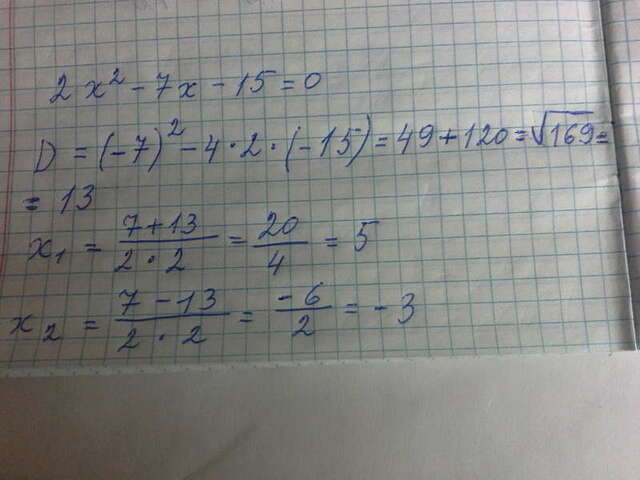 2x² - 7x - 15 = 0
D = (-7)² - 4 · 2 · (-15) = 49 + 120 = √169 =
= 13
x₁ = (7+13)/(2 · 2) = 20/4 = 5
x₂ = (7 - 13)/(2 · 2) = -6/2 = -3